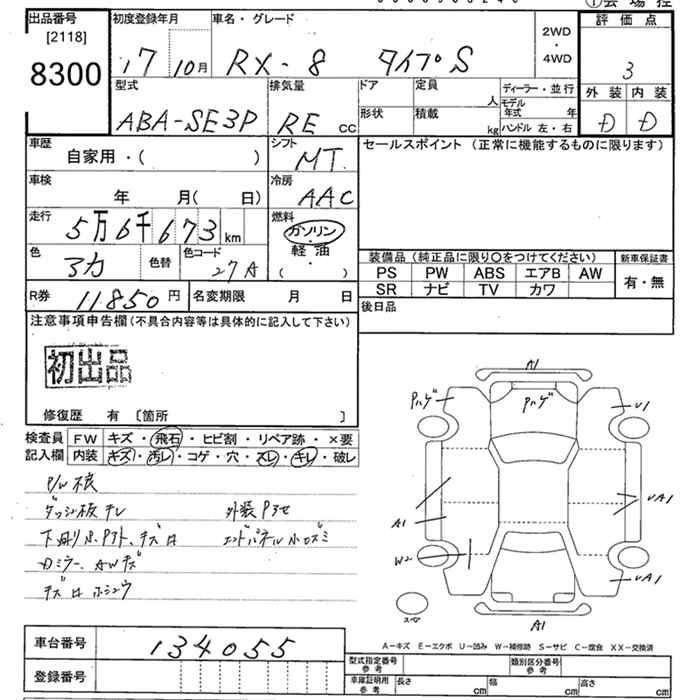 出品番号 初度登録年月 車名・グレード 評価点
[2118]
8300 17 10月 RX-8 タイプS 2WD・4WD 3
型式 排気量 ドア 定員 人 ディーラー・並行 外装 内装
ABA-SE3P RE cc 形状 積載 kg モデル年式 年 D D
ハンドル 左・右
車歴 自家用・( ) シフト MT セールスポイント (正常に機能するものに限ります)
車検 年 月( 日) 冷房 AAC
走行 5万6千673km 燃料 ガソリン・軽油・( )
色 マカ 色替 色コード 27A 装備品(純正品に限り○をつけてください) 新車保証書
PS PW ABS エアB AW 有・無
SR ナビ TV カワ
R券 11850円 名変期限 月 日 後日品
注意事項申告欄(不具合内容等は具体的に記入して下さい)
初出品
修復歴 有 〔箇所 〕
検査員記入欄 FW キズ・飛石・ヒビ割・リペア跡・×要
内装 キズ・汚レ・コゲ・穴・スレ・キレ・破レ
ダッシュ板 キレ 外装Pヨセ
Dミラー、AWキズ
A1
Pハゲ Pハゲ U1
A1 UA1
W2 UA1
スペア A1
A-キズ E-エクボ U-凹み W-補修跡 S-サビ C-腐食 XX-交換済
車台番号 134055
登録番号
型式指定番号 参考 類別区分番号 参考
車庫証明用 参考 長さ cm 幅 cm 高さ cm